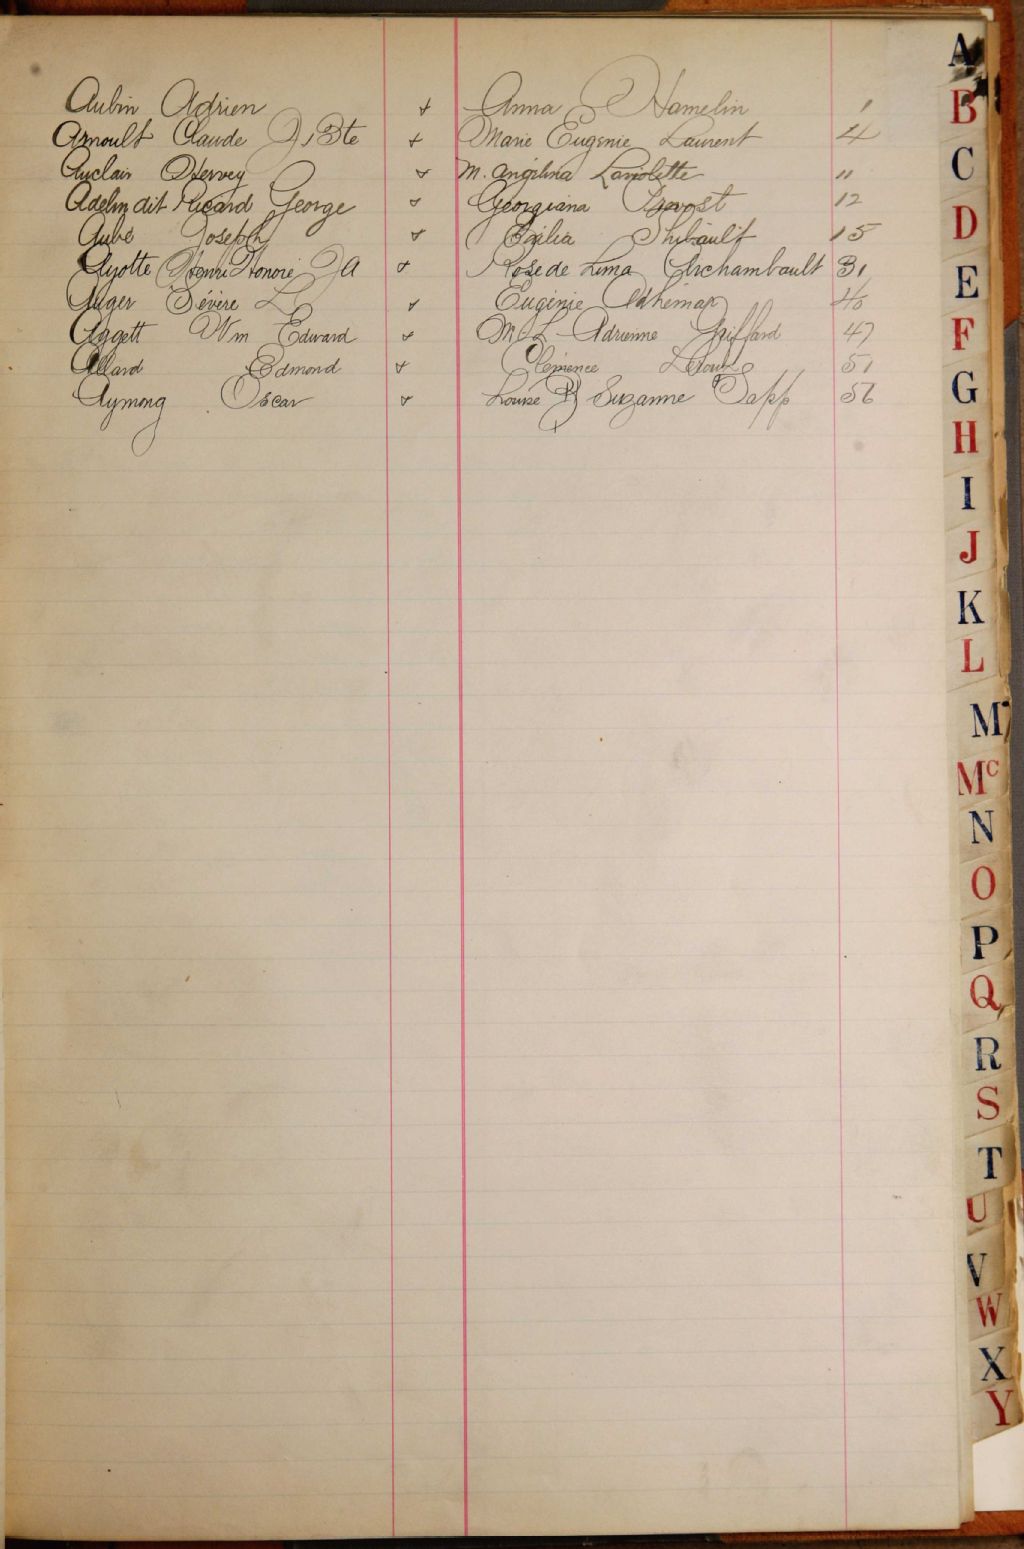 Aubin Adrien + Anna Hamelin 1
Arnoult Claude J. Bte + Marie Eugenie Laurent 4
Auclair Hervey + M. Angilina Lariolette "
Adelin dit Ricard George + Georgiana Provost 12
Aubé Joseph + Exilia Thibault 15
Ayotte Henri Honoré JA + Rose de Lima Archambault 31
Auger Sévère L + Eugénie Adhémar 40
Aggett Wm Edward + M L Adrienne Griffard 47
Allard Edmond + Clémence 51
Aymong Oscar + Louise B Suzanne Sapp 56
A
B
C
D
E
F
G
H
I
J
K
L
M
Mc
N
O
P
Q
R
S
T
U
V
W
X
Y